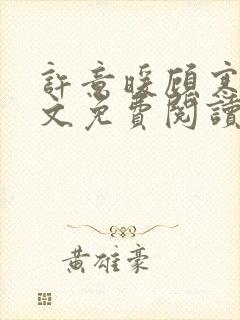 許意暖顧寒
文免費閱讀
黄雄豪